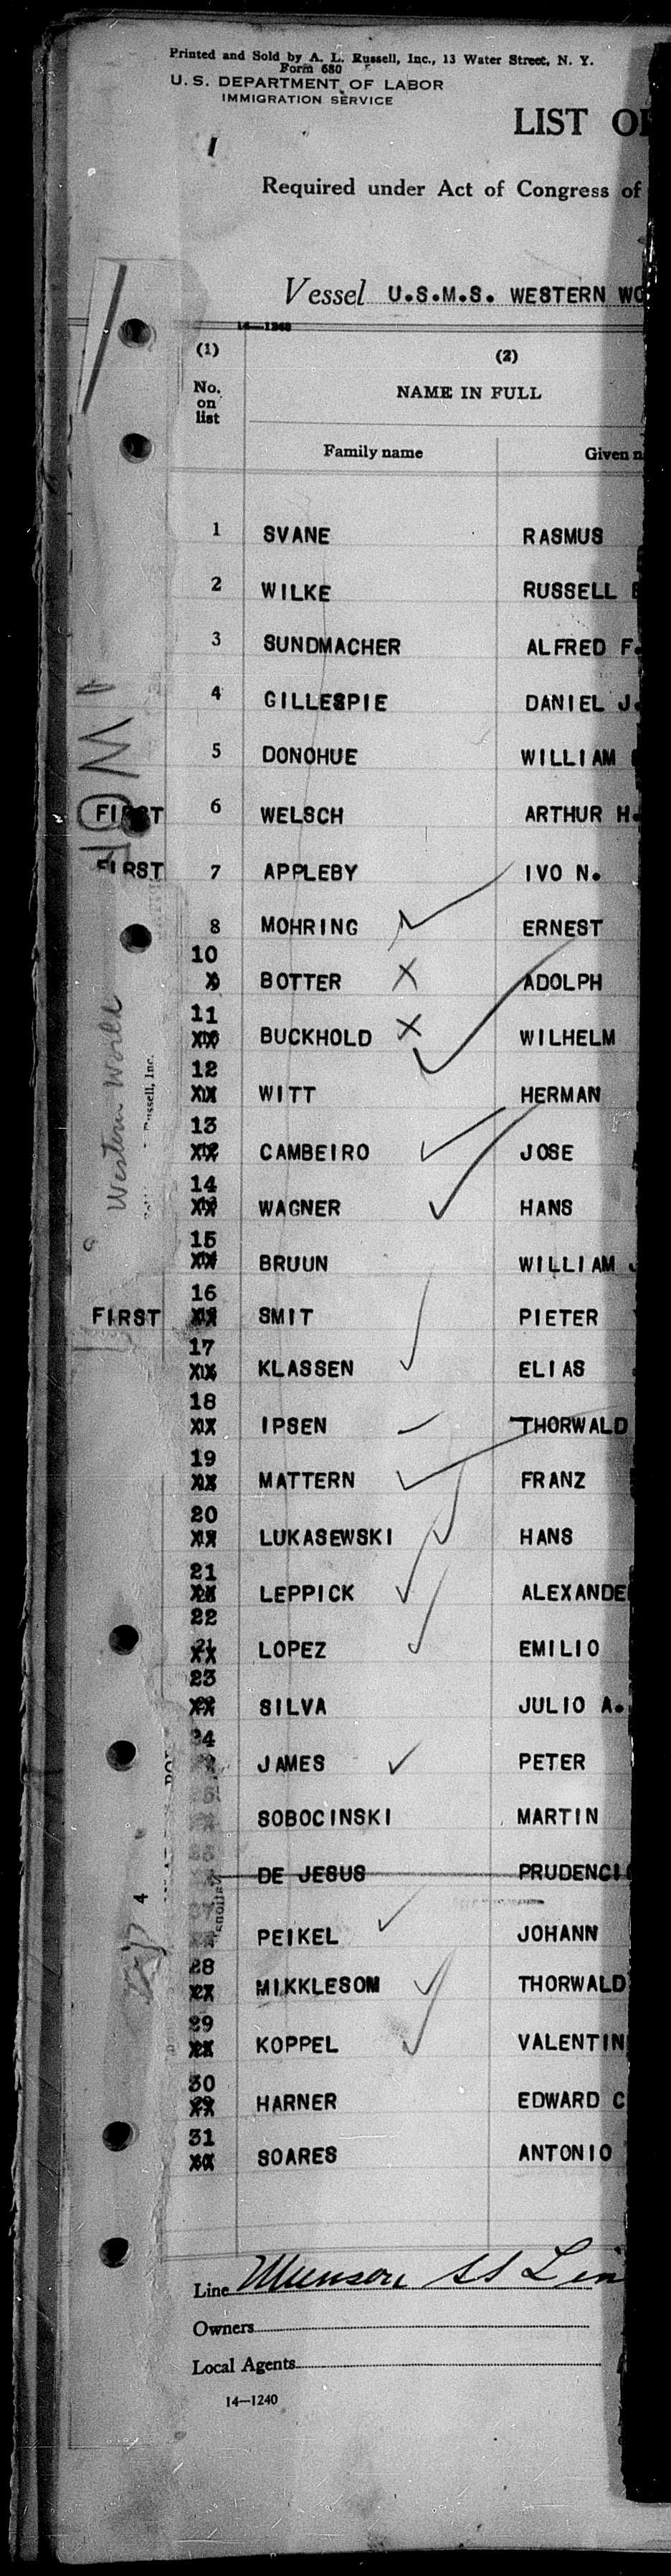 Printed and Sold by A. L. Russell, Inc., 13 Water Street, N. Y.
Form 680
U. S. DEPARTMENT OF LABOR
IMMIGRATION SERVICE
LIST OF
1
Required under Act of Congress of
Vessel U.S.M.S. WESTERN WO
14—1240
(1) (2)
No. on list NAME IN FULL
Family name Given n
1 SVANE RASMUS
2 WILKE RUSSELL
3 SUNDMACHER ALFRED F.
4 GILLESPIE DANIEL J.
5 DONOHUE WILLIAM
FIRST 6 WELSCH ARTHUR H.
FIRST 7 APPLEBY IVO N.
8 MOHRING ERNEST
10 BOTTER X ADOLPH
11 BUCKHOLD X WILHELM
12 WITT HERMAN
13 CAMBEIRO JOSE
14 WAGNER HANS
15 BRUUN WILLIAM
FIRST 16 SMIT PIETER
17 KLASSEN ELIAS
18 IPSEN THORWALD
19 MATTERN FRANZ
20 LUKASEWSKI HANS
21 LEPPICK ALEXANDE
22 LOPEZ EMILIO
23 SILVA JULIO A.
24 JAMES PETER
SOBOCINSKI MARTIN
DE JESUS PRUDENCI
PEIKEL JOHANN
28 MIKKLESOM THORWALD
29 KOPPEL VALENTIN
30 HARNER EDWARD C
31 SOARES ANTONIO
Western World
Russell, Inc.
4
Line Munson SS Lin
Owners
Local Agents
14—1240